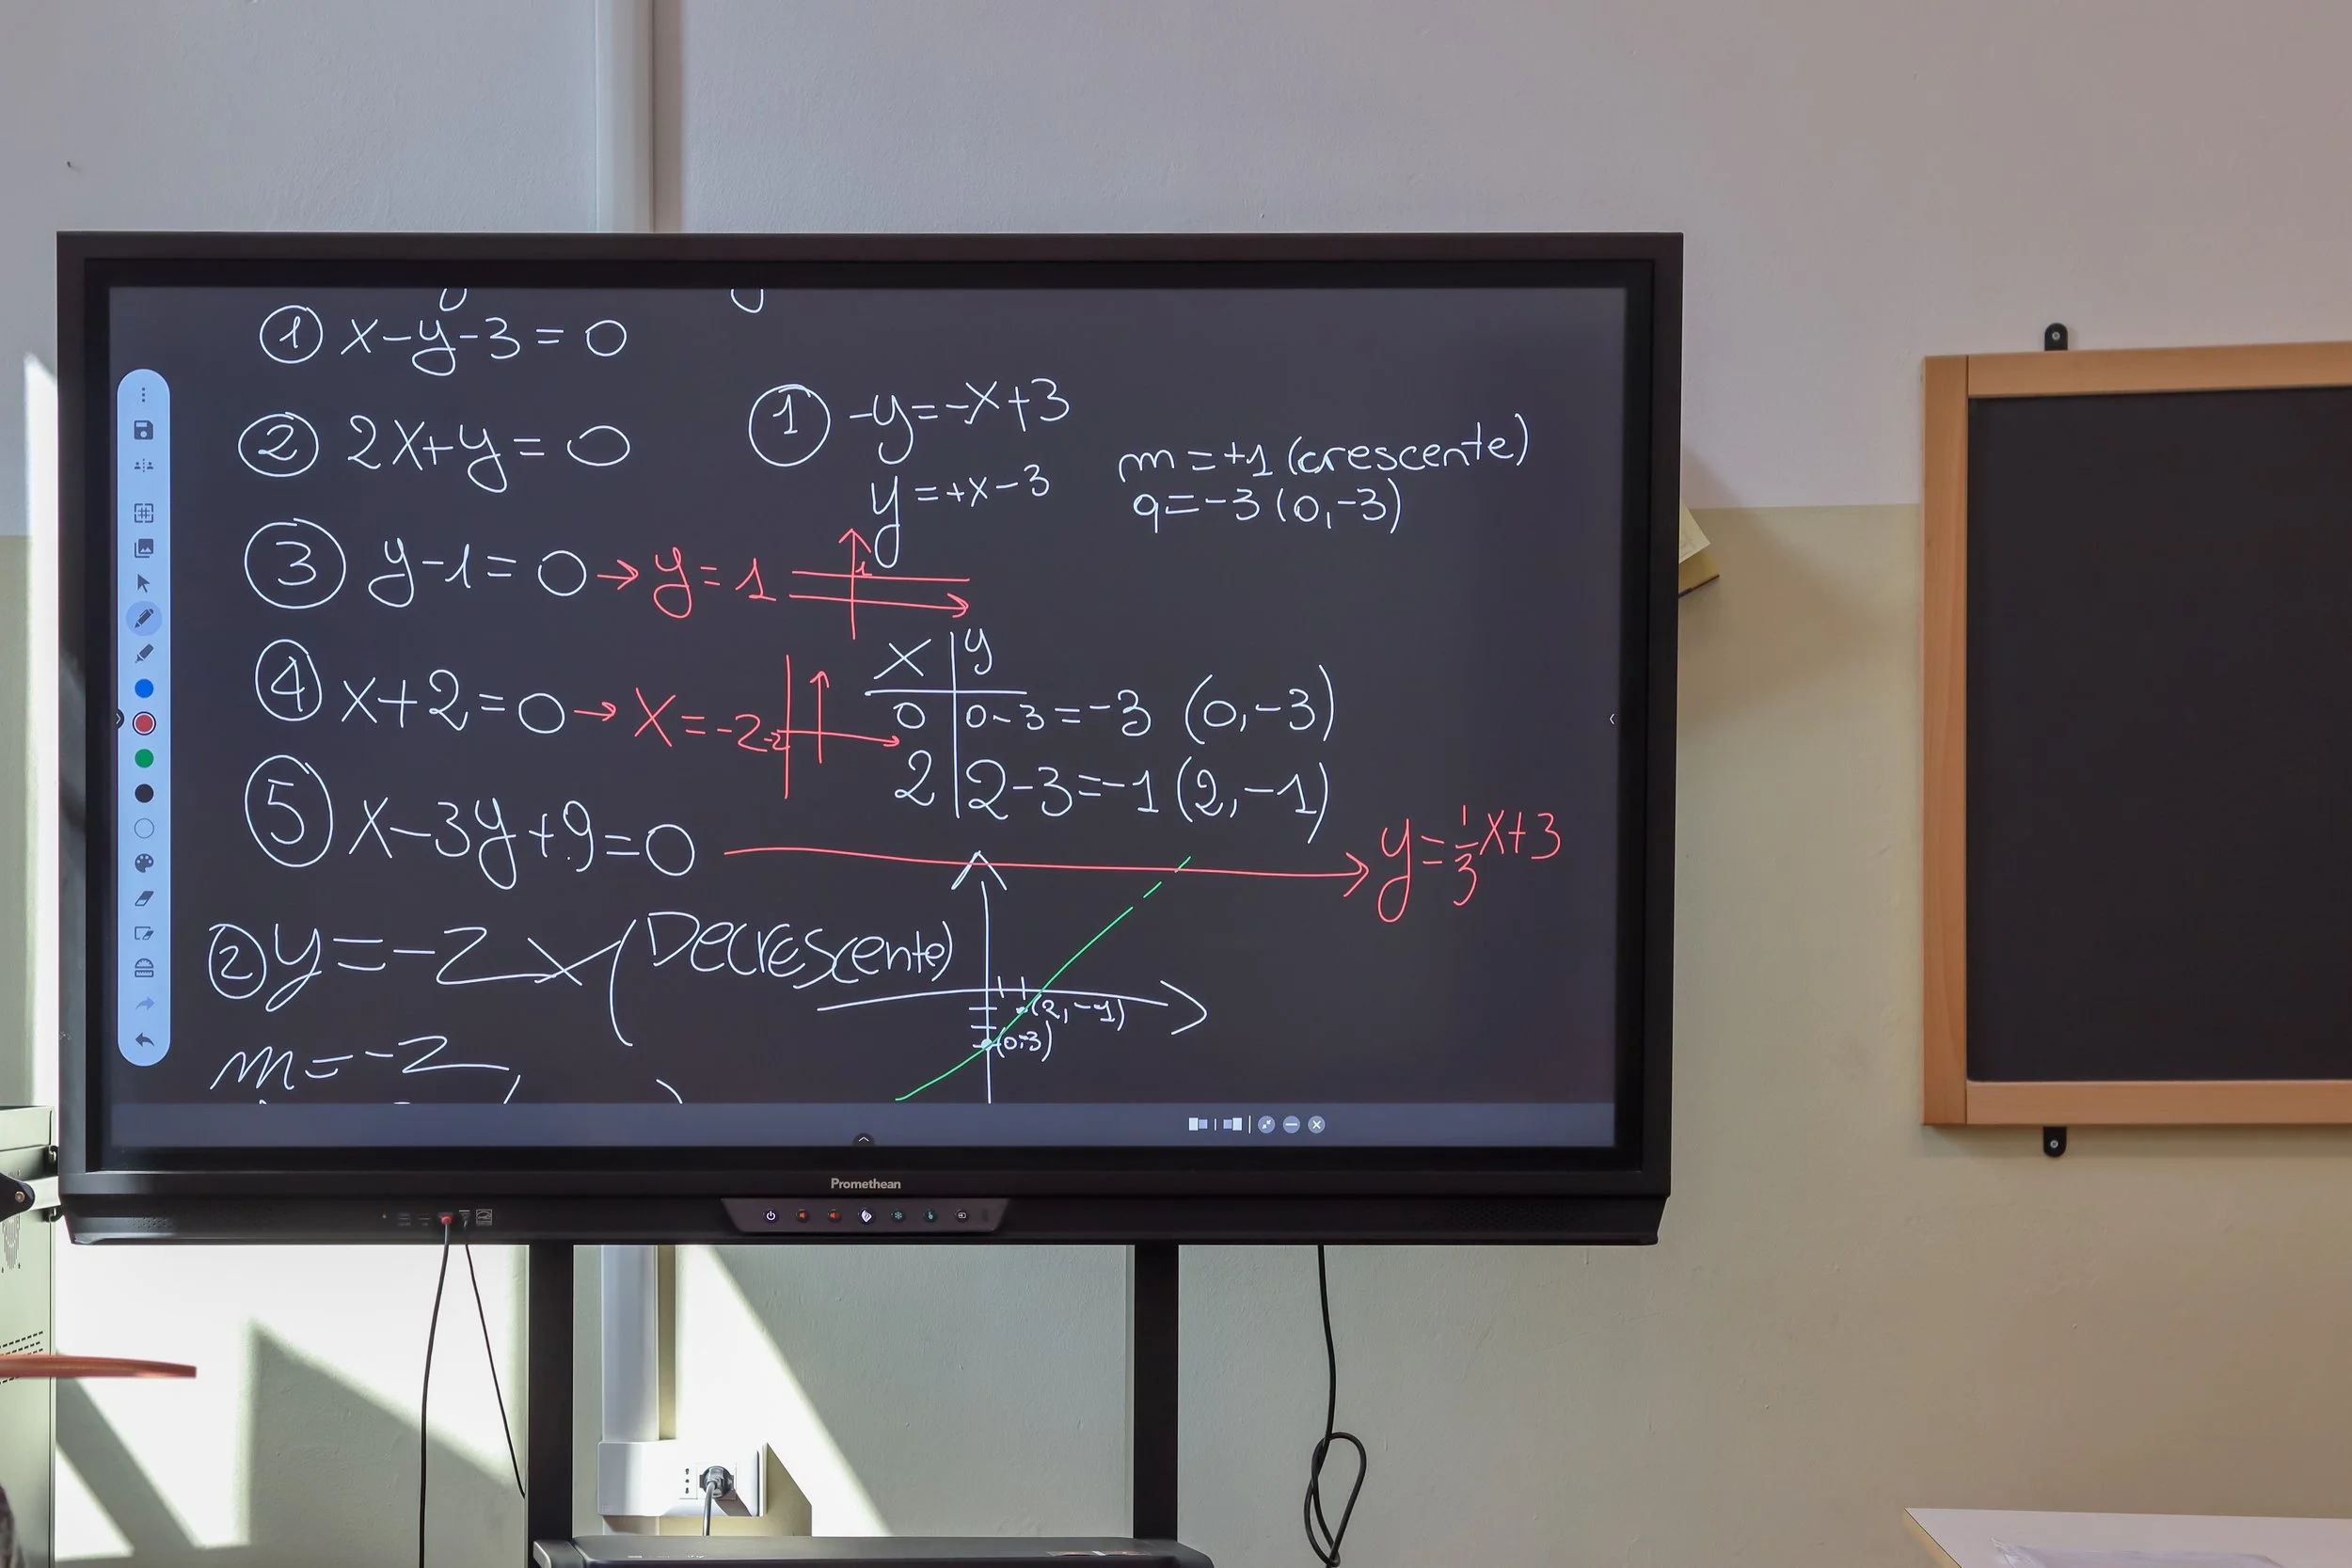 ① x-y-3=0
② 2x+y=0
① -y=-x+3
y=+x-3
m=+1 (crescente)
q=-3 (0,-3)
③ y-1=0 → y=1
1
④ x+2=0 → x=-2
-2
x | y
0 | 0-3=-3 (0,-3)
2 | 2-3=-1 (2,-1)
⑤ x-3y+9=0 → y=1/3x+3
② y=-2x (Decrescente)
(2,-1)
(0-3)
m=-2
Promethean